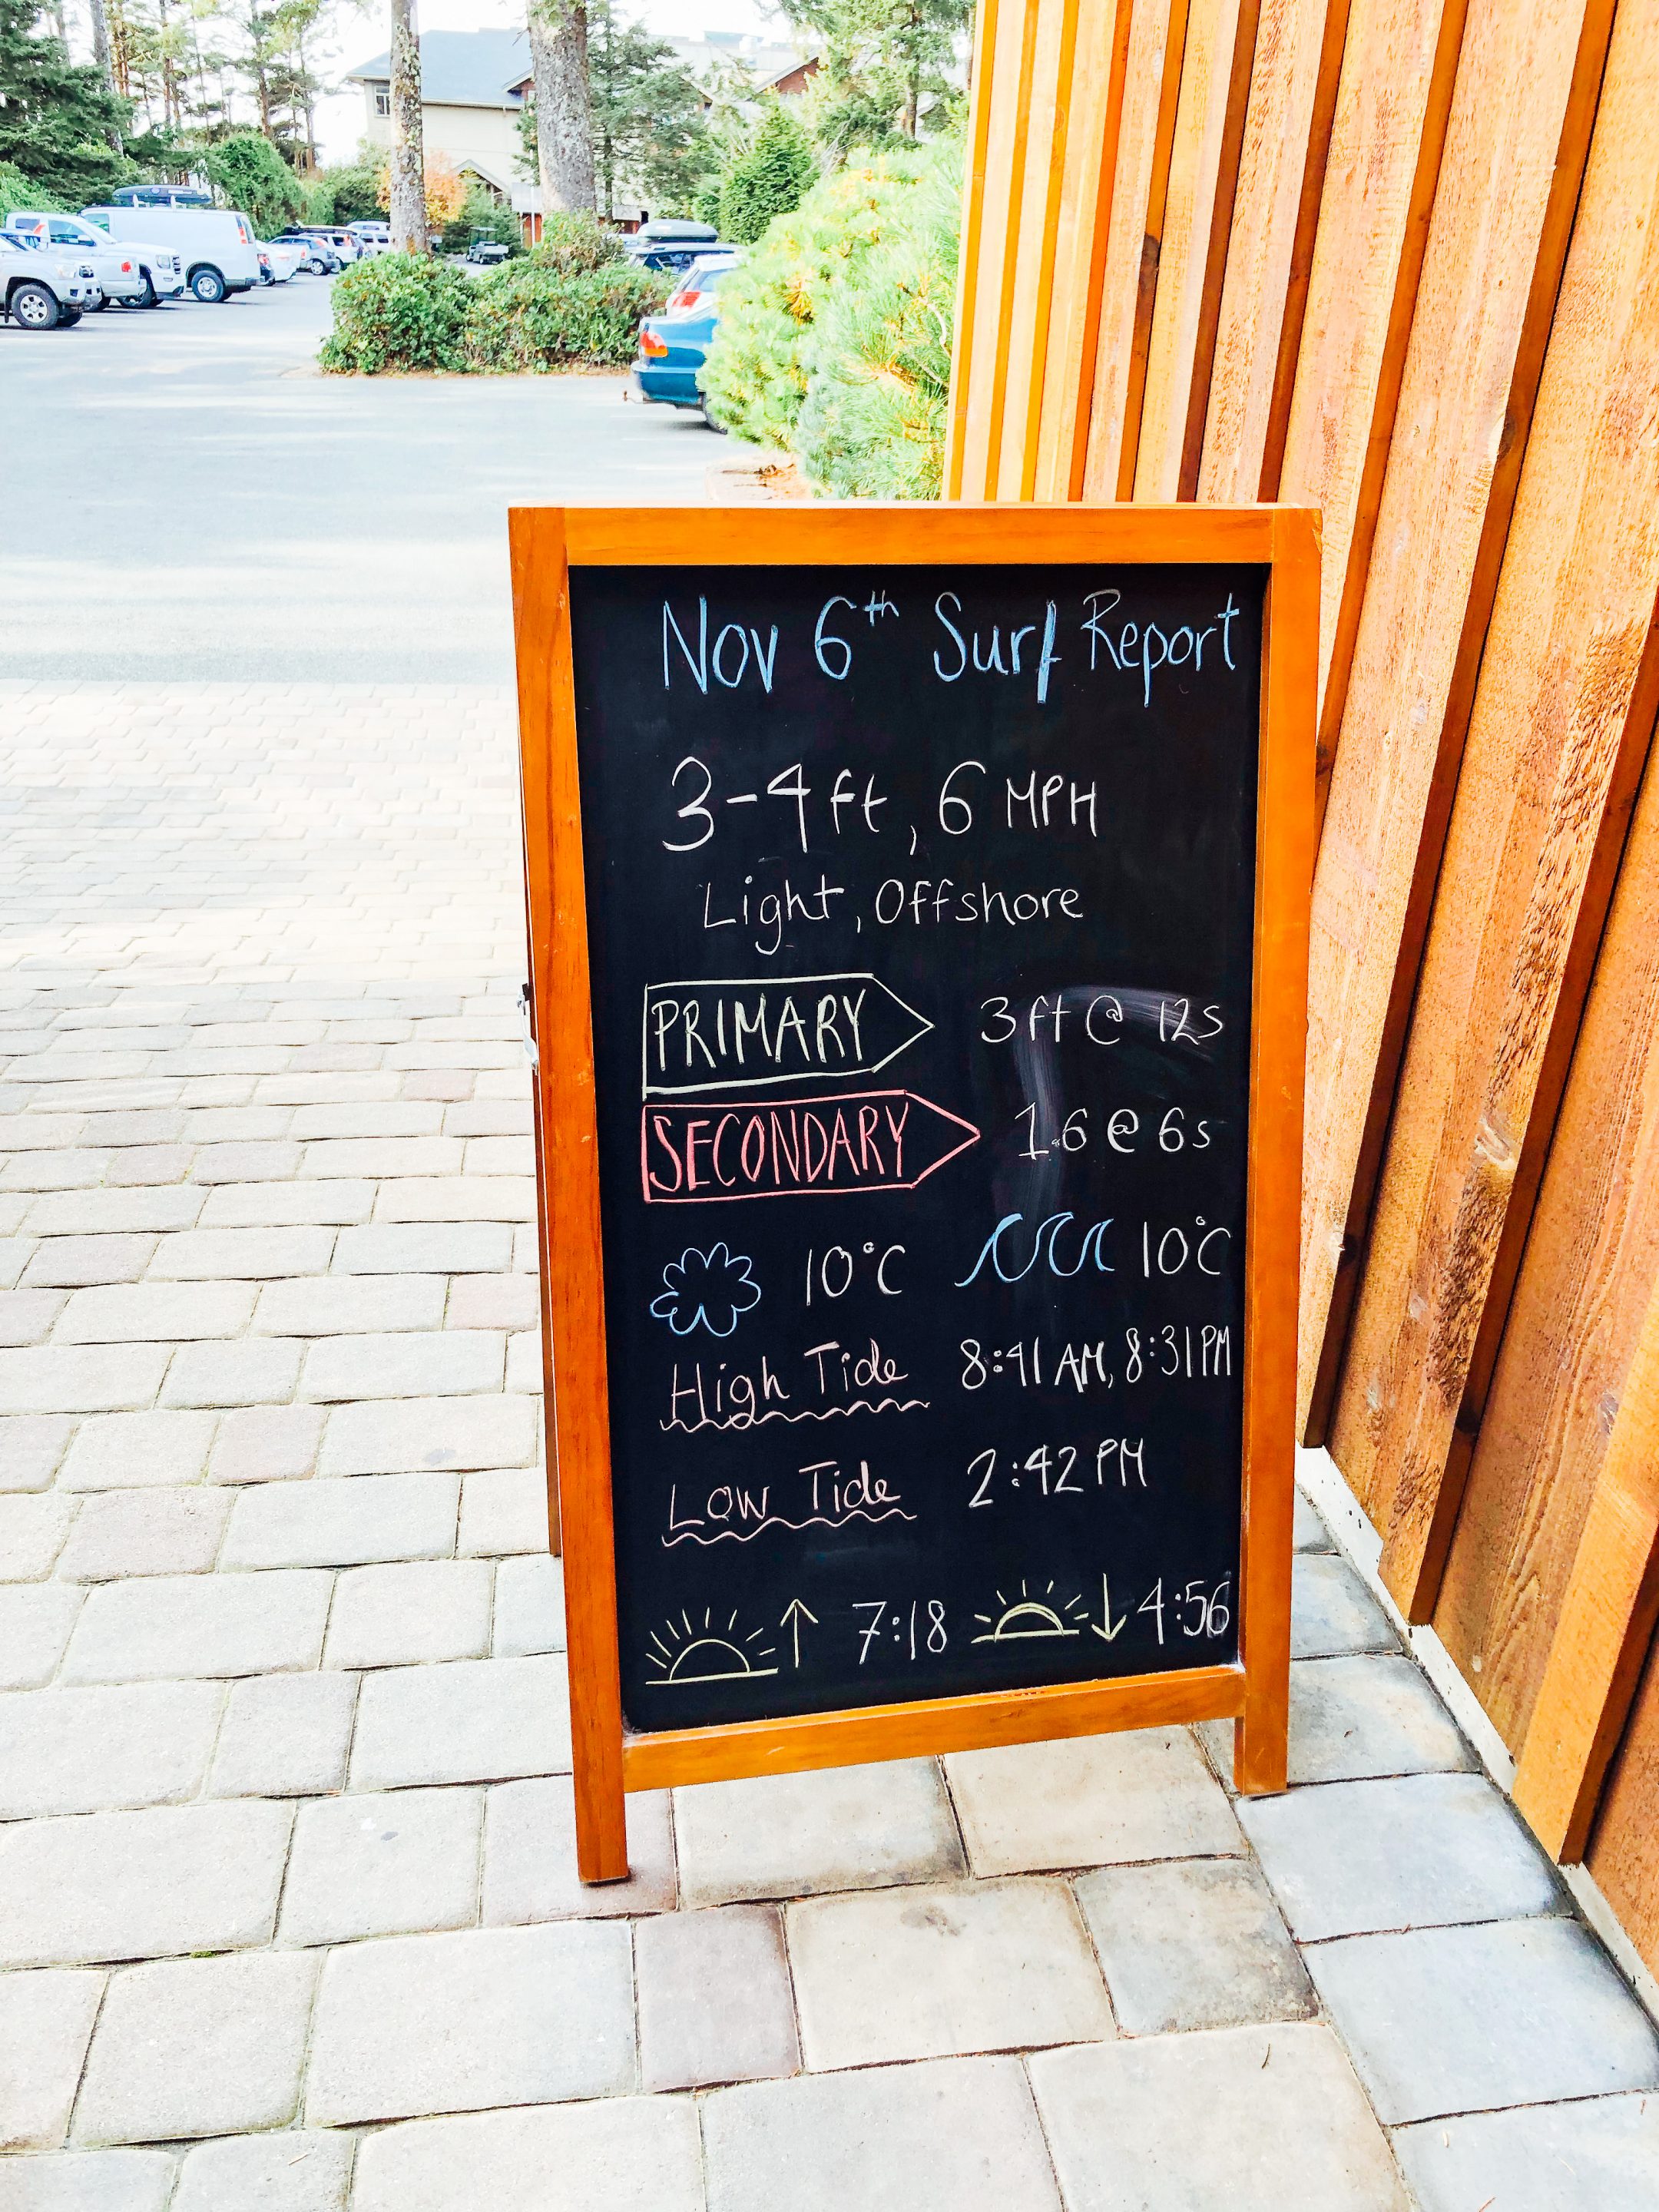 Nov 6th Surf Report
3-4ft, 6 MPH
Light, Offshore
PRIMARY 3ft @ 12s
SECONDARY 1.6 @ 6s
10°C 10°C
High Tide 8:41 AM, 8:31PM
Low Tide 2:42 PM
↑ 7:18 ↓ 4:56